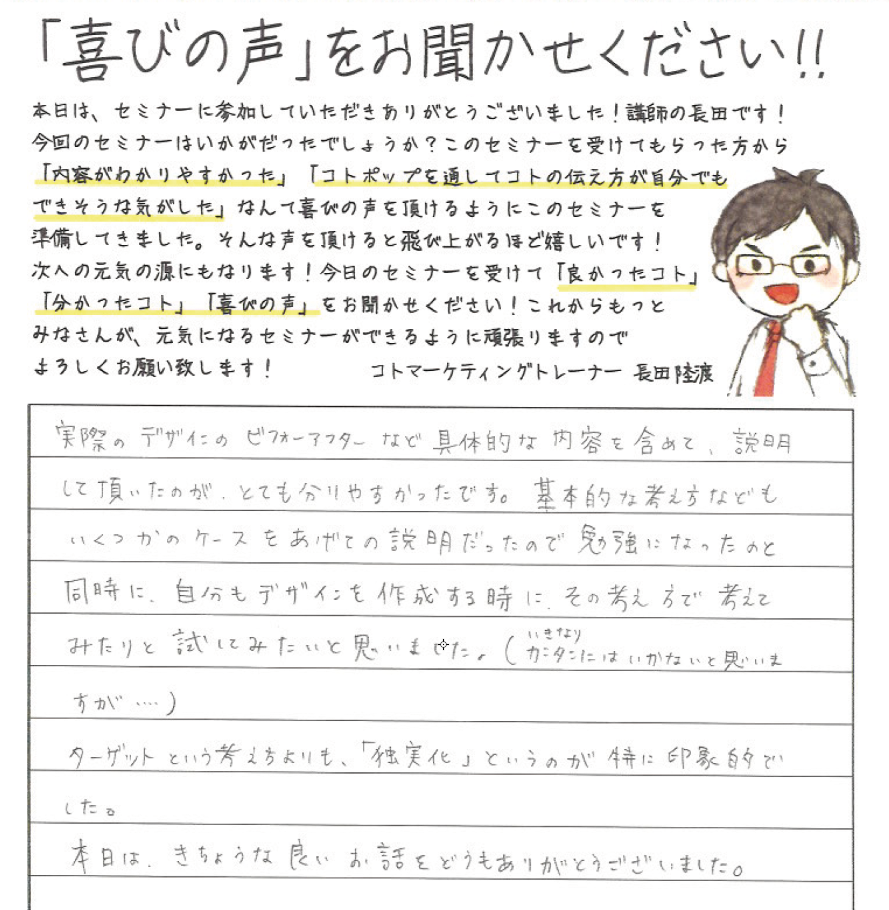 「喜びの声」をお聞かせください!!
本日は、セミナーに参加していただきありがとうございました！講師の長田です！
今回のセミナーはいかがだったでしょうか？このセミナーを受けてもらった方から
「内容がわかりやすかった」「コトポップを通してコトの伝え方が自分でも
できそうな気がした」なんて喜びの声を頂けるようにこのセミナーを
準備してきました。そんな声を頂けると飛び上がるほど嬉しいです！
次への元気の源にもなります！今日のセミナーを受けて「良かったコト」
「分かったコト」「喜びの声」をお聞かせください！これからもっと
みなさんが、元気になるセミナーができるように頑張りますので
よろしくお願い致します！
コトマーケティングトレーナー 長田陸渡
実際のデザインのビフォーアフターなど具体的な内容を含めて、説明
して頂いたのが、とても分りやすかったです。基本的な考え方なども
いくつかのケースをあげての説明だったので勉強になったのと
同時に、自分もデザインを作成する時に、その考え方で考えて
みたりと試してみたいと思いました。(いきなりカンタンにはいかないと思いま
すが‥‥)
ターゲットという考え方よりも、「独実化」というのが特に印象的で
した。
本日は、きちょうな良いお話をどうもありがとうございました。